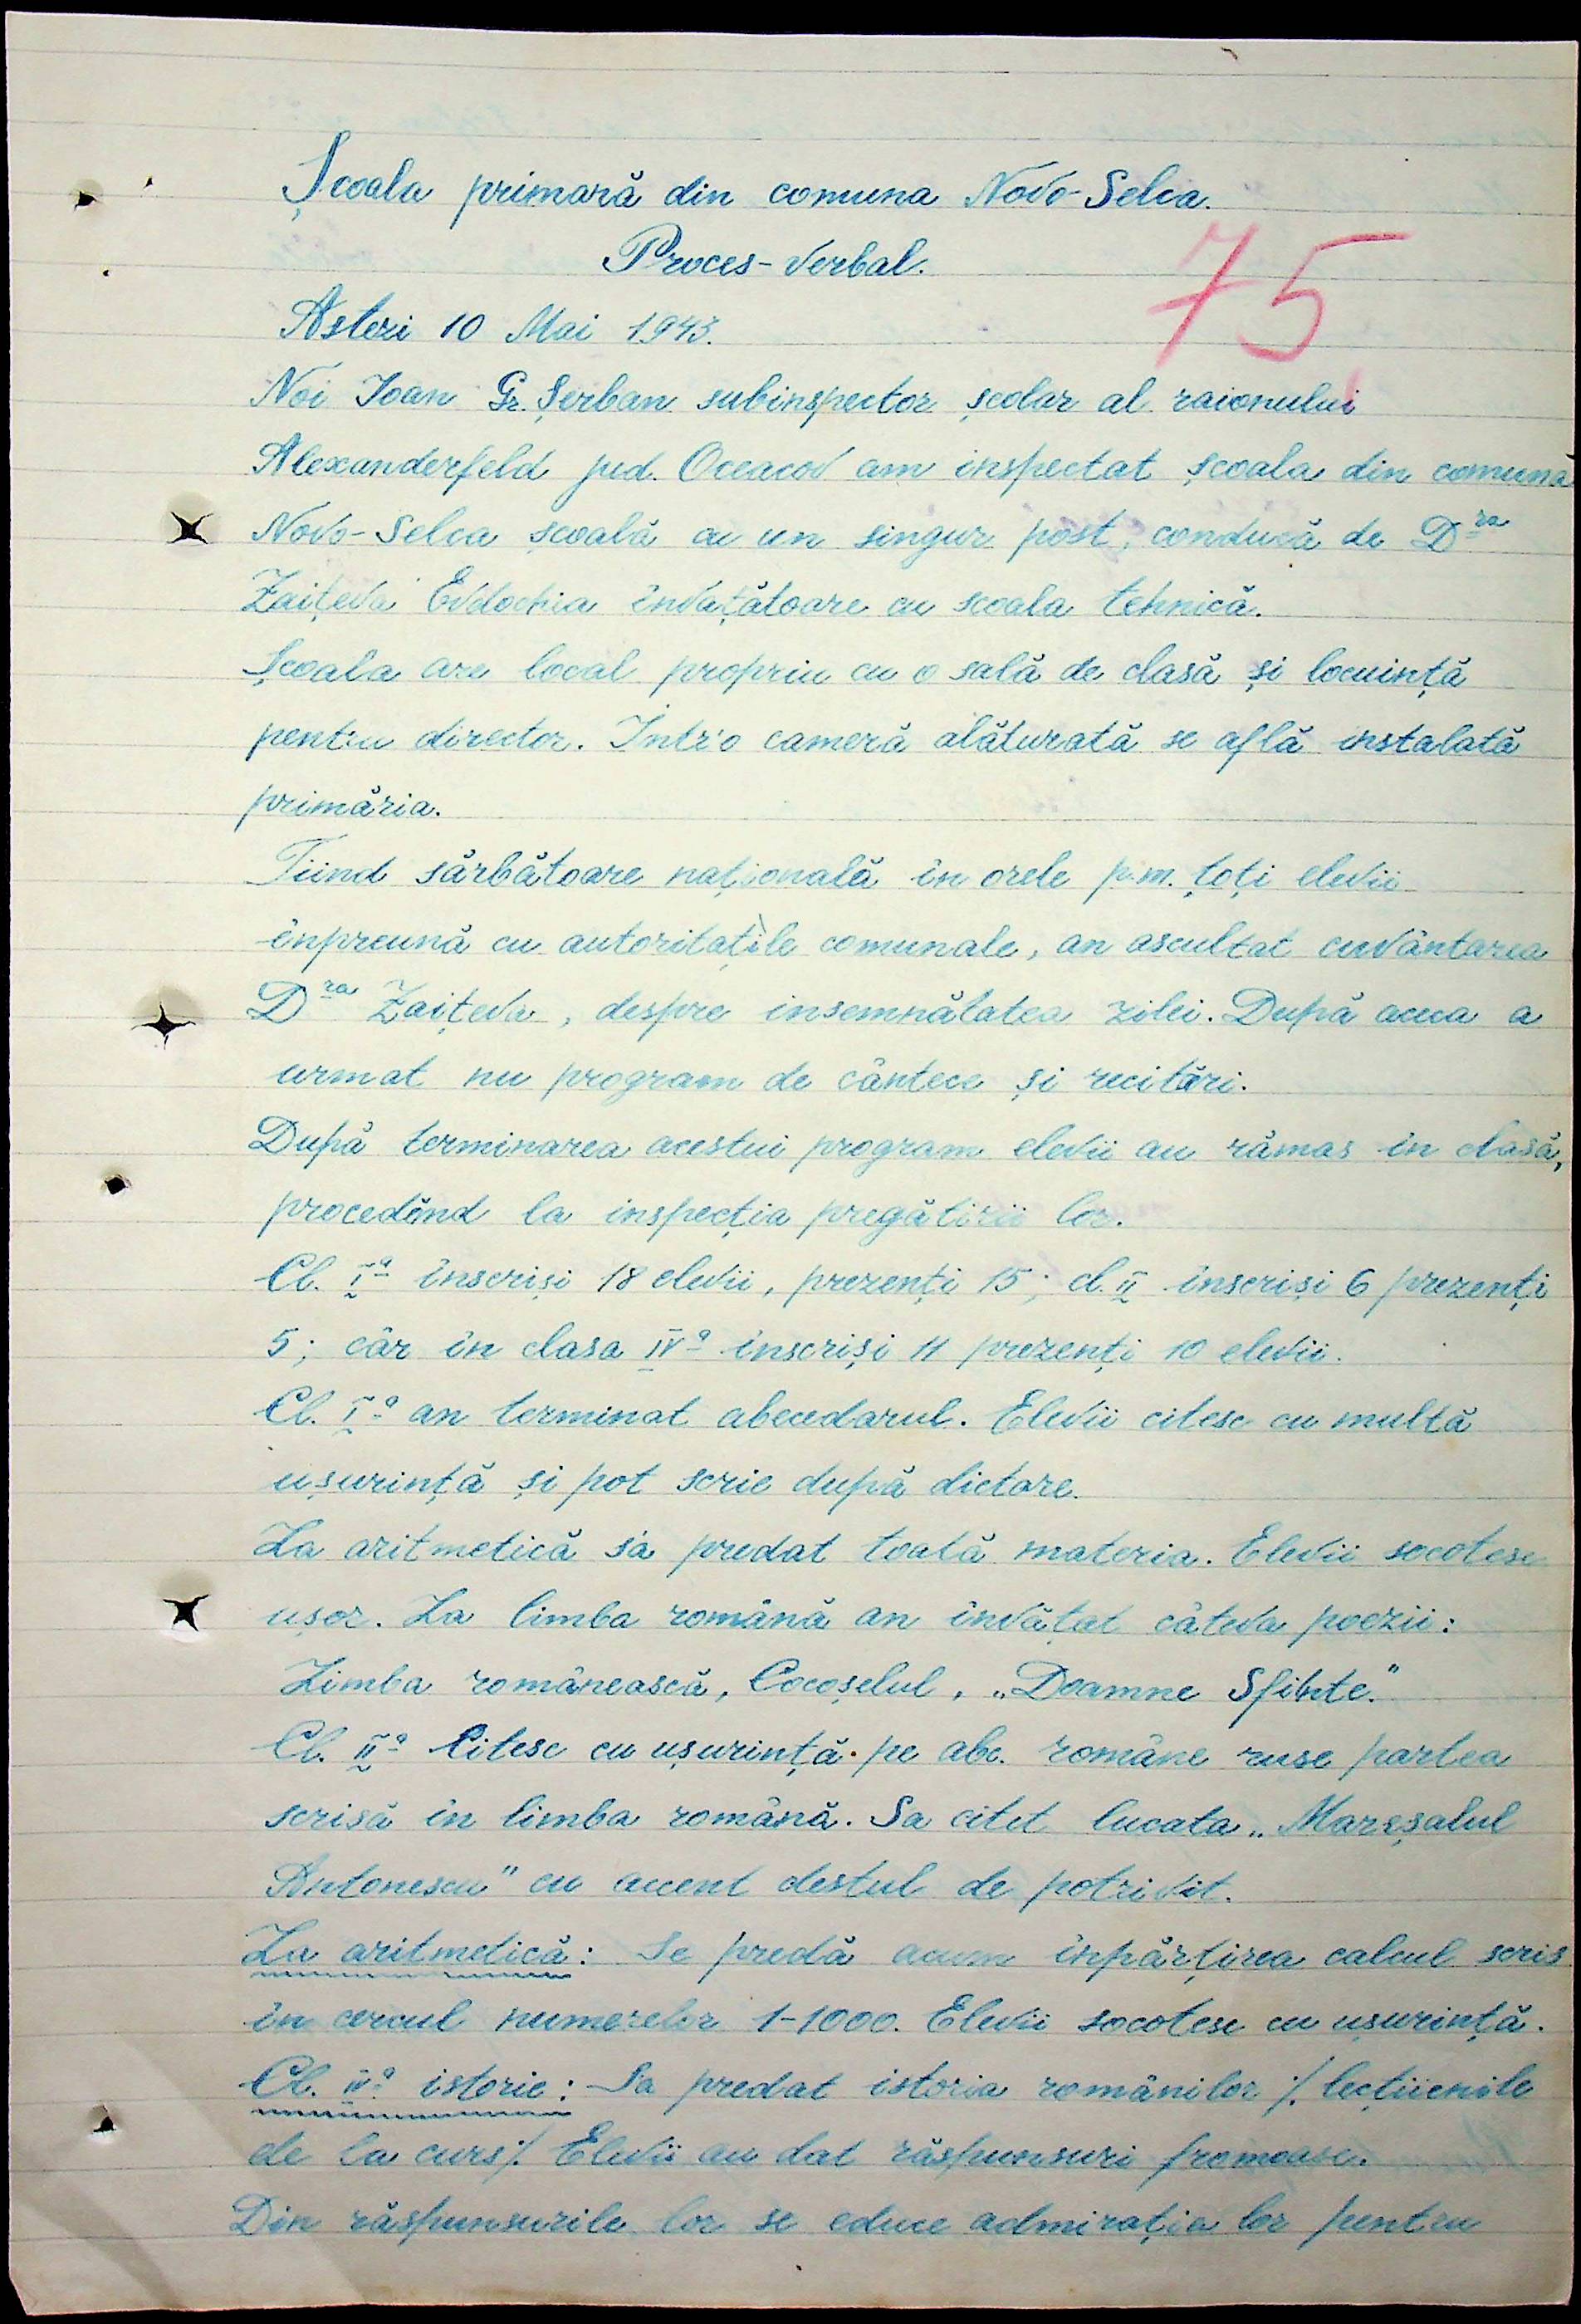 Școala primară din comuna Novo-Selca.
Proces-verbal.
75
Asteri 10 Mai 1943.
Noi Ioan Gr. Șerban subinspector școlar al raionului
Alexanderfeld jud. Oceacov am inspectat școala din comuna
Novo-Selca școală cu un singur post, conducă de Dra
Zaițeva Evdochia învațătoare cu scoala tehnică.
Școala are local propriu cu o sală de clasă și locuință
pentru director. Într'o cameră alăturată se află instalată
primăria.
Fiind sărbătoare națională in orele p.m. toți elevii
înpreună cu autoritațile comunale, an ascultat cuvântarea
Dra Zaițeva, despre insemnătatea zilei. După aceea a
urmat nu program de cântece și recitări.
După terminarea acestui program elevii au rămas in clasă,
procedînd la inspecția pregătirii lor.
Cl. Ia înscriși 18 elevii, prezenți 15; cl. II înscriși 6 prezenți
5; căr în clasa IVa înscriși 11 prezenți 10 elevii.
Cl. Ia an terminat abecedarul. Elevii citesc cu multă
ușurință și pot scrie după dictare.
La aritmetică s'a predat toată materia. Elevii socotesc
ușor. La limba română an învățat câteva poezii:
Limba românească, Cocoșelul, „Doamne Sfinte."
Cl. IIa Citesc cu ușurință. pe abc. române ruse partea
scrisă in limba română. Sa citit lucata „Mareșalul
Antonescu" cu accent destul de potrivit.
La aritmetică: Se predă acum înpărțirea calcul scris
în cercul numerelor 1-1000. Elevii socotesc cu ușurință.
Cl. IVa istorie: Sa predat istoria românilor /. lecțiienile
de la curs/. Elevii au dat răspunsuri fromoase.
Din răspunsurile lor se educe admirația lor pentru